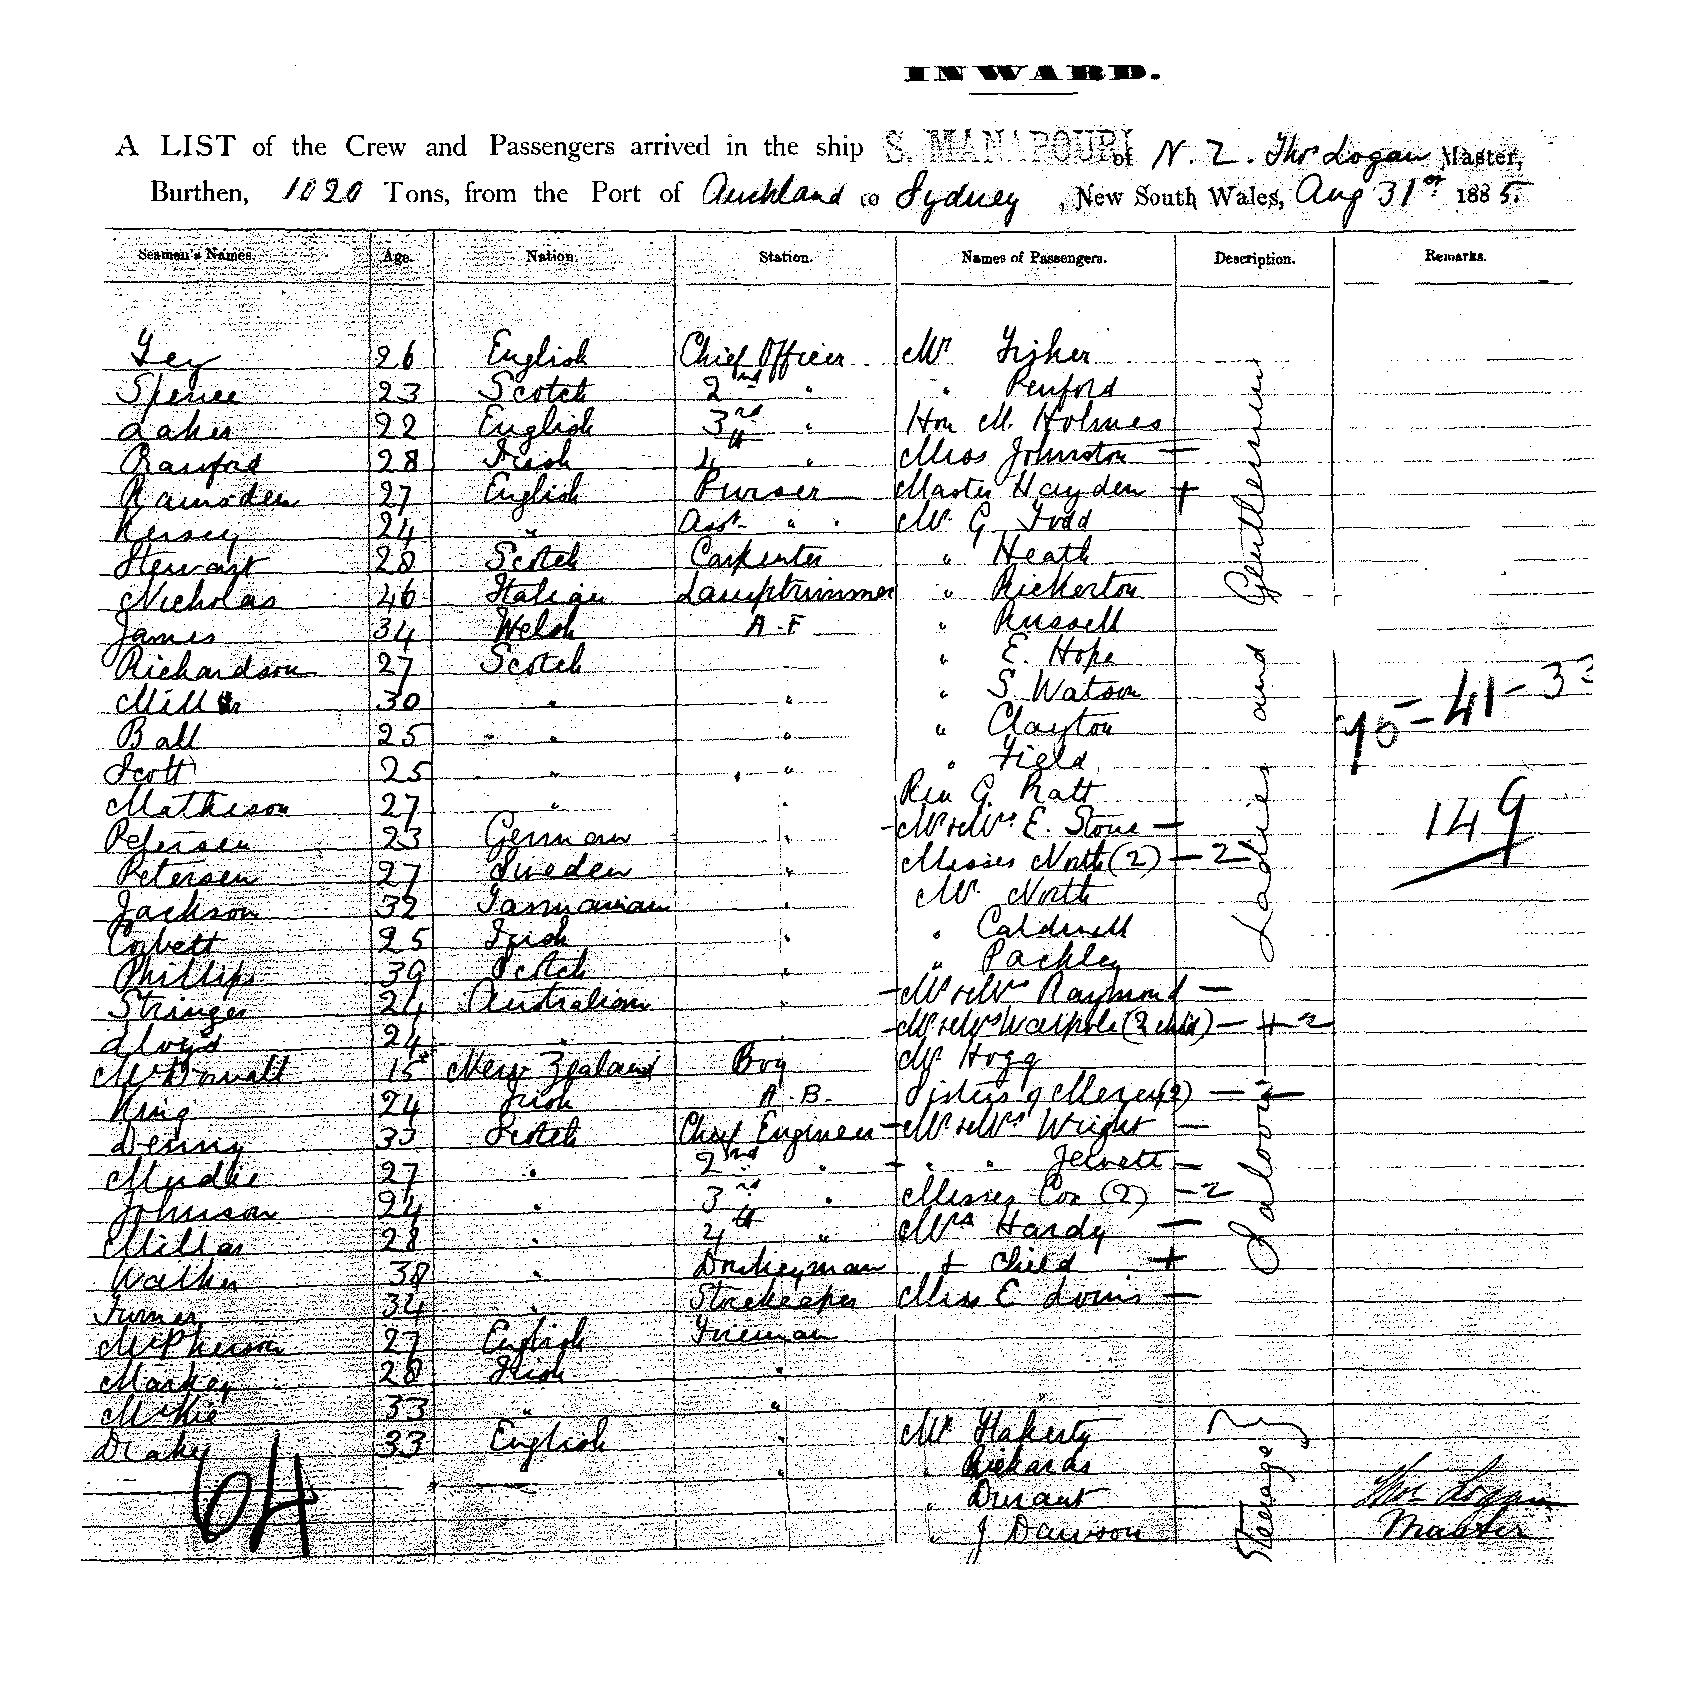 INWARD.
A LIST of the Crew and Passengers arrived in the ship S. MANAPOURI of N. Z. Thos Logan Master,
Burthen, 1020 Tons, from the Port of Auckland to Sydney, New South Wales, Aug 31st 1885.
Seamen's Names. Age. Nation. Station. Names of Passengers. Description. Remarks.
26 English Chief Officer Mr Fisher
Spence 23 Scotch 2nd " " Penford
22 English 3rd " Hon M. Holmes
28 Irish 4th " Miss Johnston —
Ramsden 27 English Purser Master Hayden +
Kersey 24 " Asst " " Mr G Todd
Stewart 28 Scotch Carpenter " Heath
Nicholas 46 Italian Lamptrimmer " Rickerton
James 34 Welsh A.F " Russell
Richardson 27 Scotch " E. Hope
Miller 30 " " " S. Watson
Ball 25 " " " " Clayton
Scott 25 " " " Field
Mathison 27 " " Rev G. Pratt
Petersen 23 German " — Mr & Mrs E. Stone —
Petersen 27 Sweden " Misses North (2) — 2
Jackson 32 Tasmanian " Mr North
Corbett 25 Irish " " Caldwell
Phillips 39 Scotch " " Packley
Stringer 24 Australian " — Mr & Mrs Raymond —
Lloyd 24 " " — Mr & Mrs Walpole (2 child) — + 2
McDowall 15 New Zealand Boy Mr Hogg
King 24 Irish A.B. Sisters of Mercy (2) — 2
Denny 33 Scotch Chief Engineer — Mr & Mrs Wright —
Mudie 27 " 2nd " — " " Jewett —
Johnson 24 " 3rd " Misses Cox (2) — 2
Millar 28 " 4th " Mrs Hardy —
Walker 38 " Donkeyman + Child +
Turner 34 " Storekeeper Miss E Lewis —
McPherson 27 English Fireman
Markey 28 Irish "
McKie 33 " " "
Drakey 33 English " Mr Flaherty
" " Rickards
" Durant
" J Dawson
Saloon Ladies and Gentlemen
Steerage
95 = 41 - 33
149
64
Thos Logan
Master